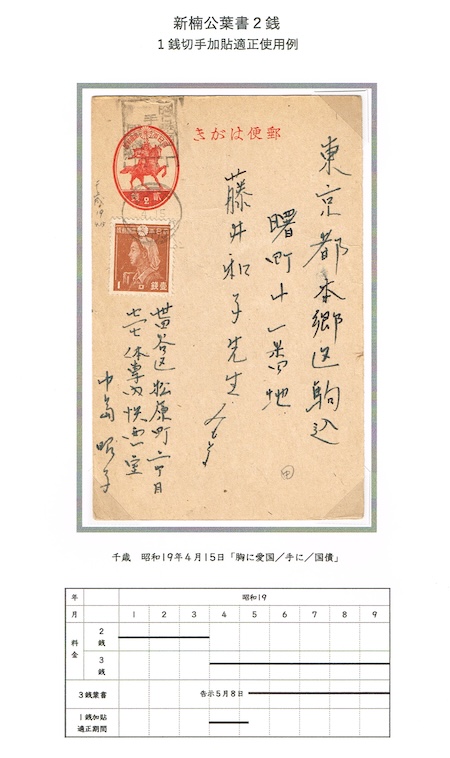 新楠公葉書２銭
１銭切手加貼適正使用例
郵便はがき
東京都本郷区駒込
曙町十一番地
藤井和子先生
世田谷区松原町二丁目
中島昭子
千歳19
4.15
1
千歳　昭和19年４月15日「胸に愛国／手に／国債」
年 昭和19
月 1 2 3 4 5 6 7 8 9
料金 2銭
3銭
３銭葉書 告示５月８日
１銭加貼
適正期間